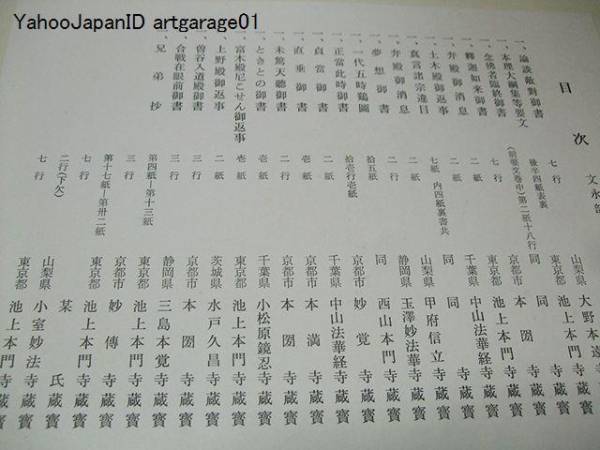 YahooJapanID artgarage01
目次
文永部
一、論談敵對御書　七行　山梨県　大野本遠
一、本理大綱集等要文　後半四紙表裏　東京都　池上本門寺藏寶
一、念佛者臨終御書　(前要文卷中)第二紙十八行　同　同　寺藏寶
一、釋迦如來御書　二行　京都市　本圀寺藏寶
一、弁殿御消息　七行　東京都　池上本門寺藏寶
一、土木殿御返事　二紙　千葉県　中山法華経寺藏寶
一、真言諸宗違目　七紙　内四紙裏書共　同　同　寺藏寶
一、弁殿御消息　二行　山梨県　甲府信立寺藏寶
一、夢想御書　二行　静岡県　玉澤妙法華寺藏寶
一、一代五時鶏圖　拾五紙　同　西山本門寺藏寶
一、正當此時御書　拾壱行壱紙　京都市　妙覚寺藏寶
一、貞當御書　二行　千葉県　中山法華経寺藏寶
一、直垂御書　壱紙　京都市　本満寺藏寶
一、未驚天聽御書　二行　京都市　本圀寺藏寶
一、ときとの御書　壱紙　千葉県　小松原鏡忍寺藏寶
一、富木殿尼ごぜん御返事　壱紙　東京都　池上本門寺藏寶
一、上野殿御返事　二紙　茨城県　水戸久昌寺藏寶
一、曽谷入道殿御書　三行　京都市　本圀寺藏寶
一、合戦在眼前御書　三行　静岡県　三島本覚寺藏寶
一、兄弟抄　第四紙―第十三紙　東京都　池上本門寺藏寶
三行　京都市　妙傳寺藏寶
第十七紙―第卅二紙　東京都　池上本門寺藏寶
七行　某氏藏
二行(下欠)　山梨県　小室妙法寺藏寶
七行　東京都　池上本門寺藏寶